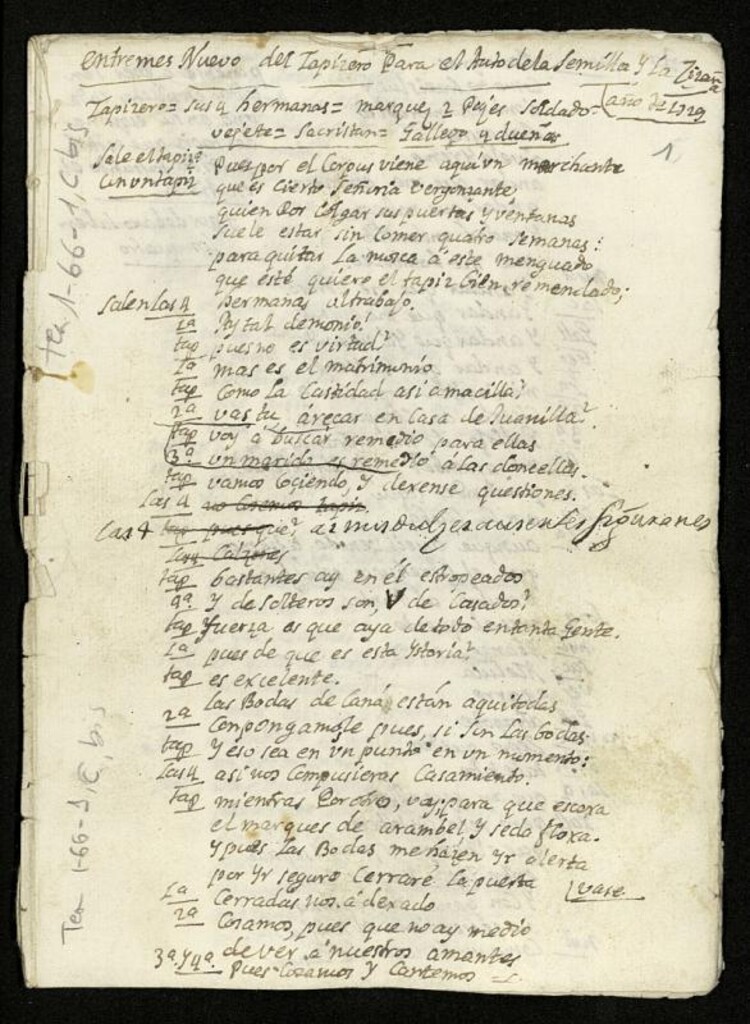 Entremes Nuevo del Tapizero Para el Auto de la Semilla y La Zizaña
Tapizero = sus 4 hermanas = marques, 2 Pajes Soldado = año de 1729
vejete = Sacristan = Gallego y dueñas
1
Sale el tapiz. Pues por el Corpus viene aqui un marchante
con un tapiz que es cierto Señoria vergonzante,
quien Por Colgar sus puertas y ventanas
suele estar sin comer quatro semanas:
para quitar La mosca a este menguado
que esté quiero el tapiz bien remendado;
Salen Las 4 hermanas al trabajo.
1ª Ay tal demonio!
tap pues no es virtud?
1ª mas es el matrimonio
tap Como La Castidad asi amacilla?
2ª vas tu a reçar en Casa de Juanilla?
tap voy á buscar remedio para ellas
3ª un marido es remedio á Las doncellas.
tap vamos Cosiendo, y dexense questiones.
Las 4 no Cosemos tapiz.
Las 4 tap pues que? a
Las 4 Calzones
tap bastantes ay en él estropeados
4ª Y de Solteros son, V de Casados?
tap fuerza es que aya de todo en tanta Gente.
1ª pues de que es esta Ystoria?
tap es excelente.
Las Bodas de Caná están aqui todas
2ª Compongamosle pues, si son Las bodas
tap Y eso sea en un punto en un momento:
Las 4 asi nos Compusieras Casamiento.
tap mientras Cobro, voy, para que
el marques de arambel y seda floxa.
Y pues Las Bodas me hazen yr alerta
por yr seguro Cerraré La puerta vase
1ª Cerradas nos á dexado
2ª Cosamos, pues que no ay medio
de ver á nuestros amantes
3ª y 4ª Pues Cosamos y Cantemos
Tea 1-66-1, C, bis
Tea 1-66-1, C, bis